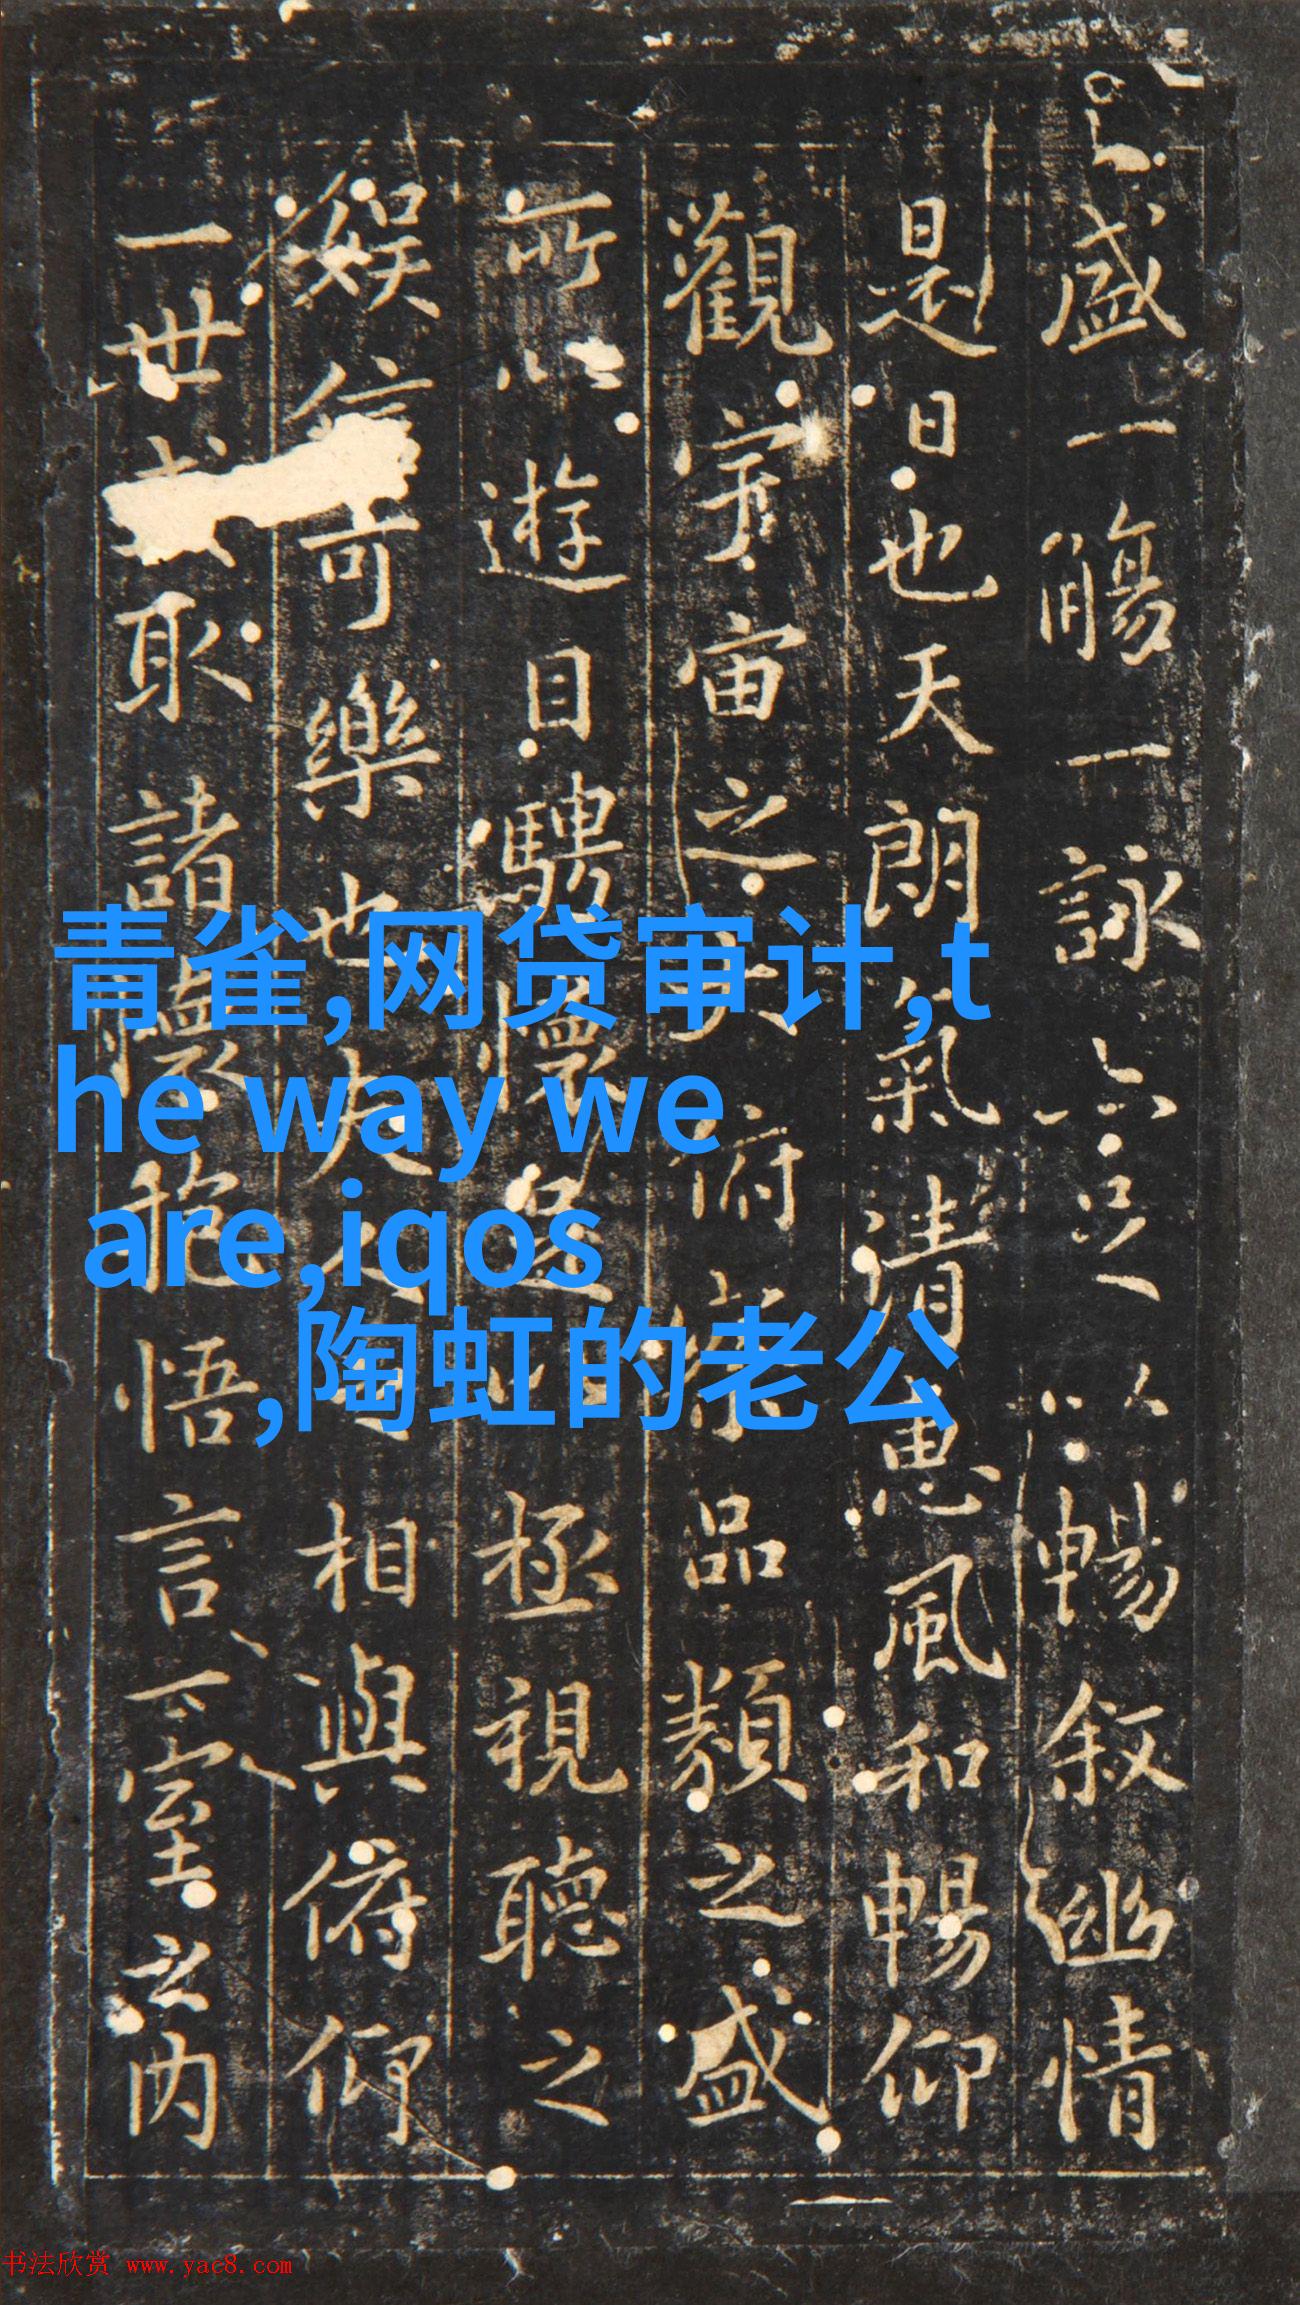 盛一觴一詠亦足以暢敘幽情
是日也天朗氣清惠風和暢仰
觀宇宙之大俯察品類之盛
所以遊目騁懷足以極視聽之
娛信可樂也夫人之相與俯仰
一世或取諸懷抱悟言一室之內
青雀,网贷审计,t
he way we
are,iqos
,陶虹的老公
书法欣赏 www.yac8.com